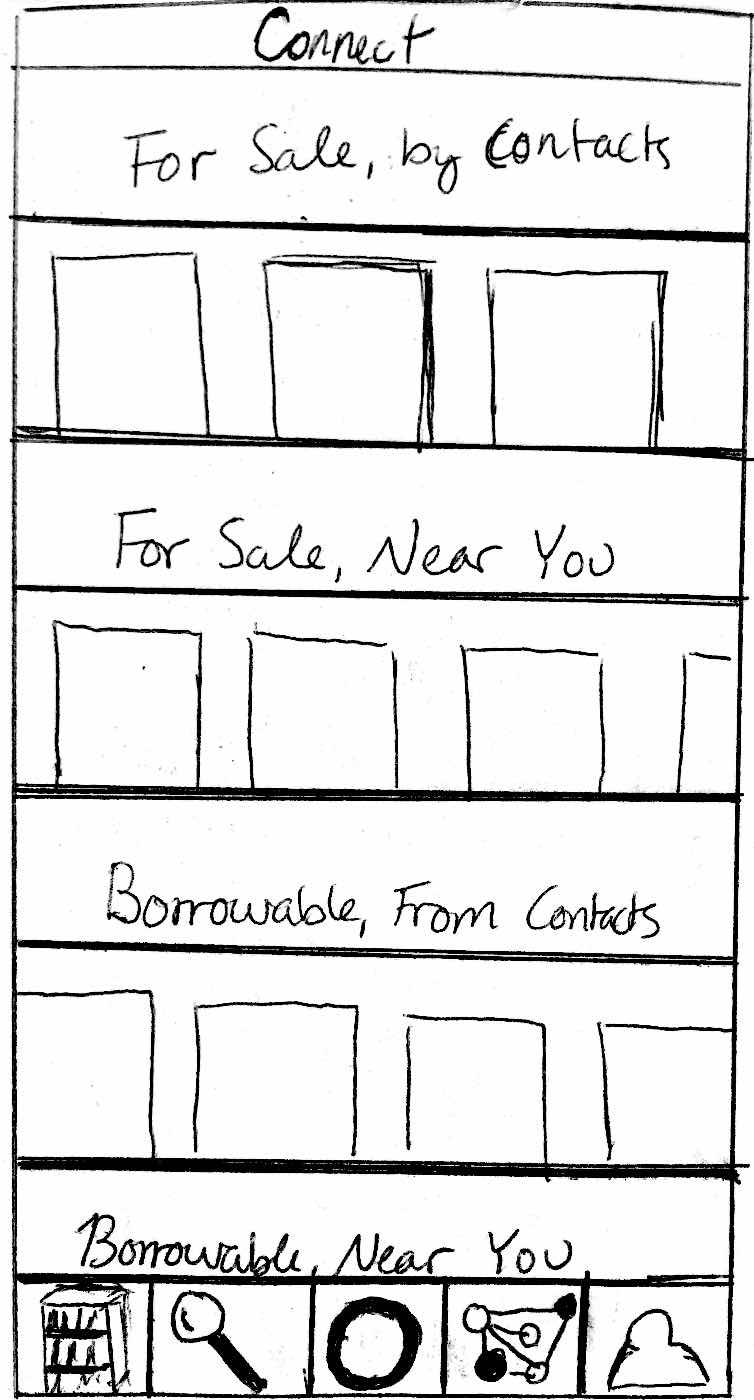 Connect
For Sale, by Contacts
For Sale, Near You
Borrowable, From Contacts
Borrowable, Near You